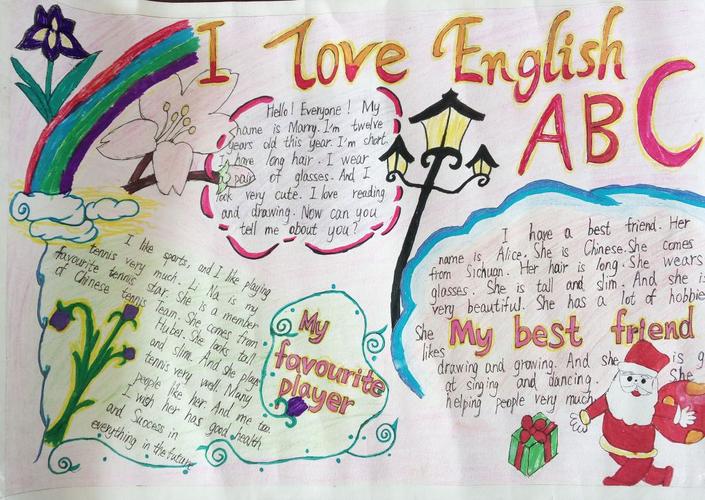 I love English
ABC
Hello! Everyone! My
name is Marry. I'm twelve
years old this year. I'm short.
I have long hair. I wear
a pair of glasses. And I
look very cute. I love reading
and drawing. Now can you
tell me about you?
I like sports, and I like playing
tennis very much. Li Na is my
favourite tennis star. She is a member
of Chinese tennis Team. She comes from
Hubei. She looks tall
and slim. And she plays
tennis very well. Many
people like her. And me too.
I wish her has good health
and Success in
everything in the future
My
favourite
player
I have a best friend. Her
name is Alice. She is Chinese. She comes
from Sichuan. Her hair is long. She wears
glasses. She is tall and slim. And she is
very beautiful. She has a lot of hobbie
She
likes
My best friend
drawing and growing. And she is g
at singing and dancing. She
helping people very much.